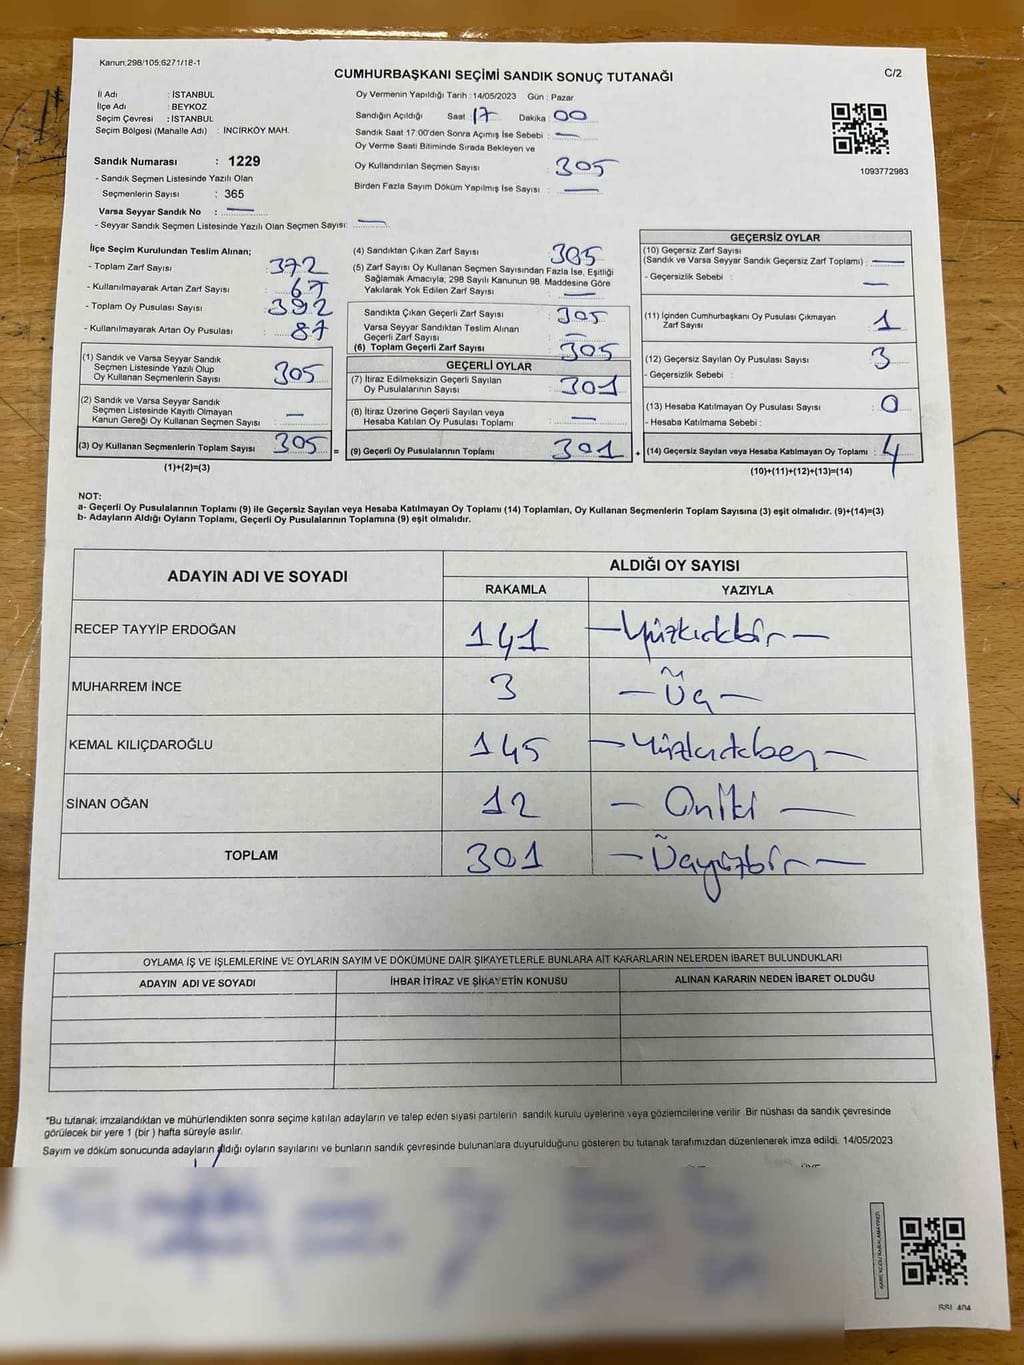 Kanun;298/105;6271/18-1
CUMHURBAŞKANI SEÇİMİ SANDIK SONUÇ TUTANAĞI
C/2
İl Adı : İSTANBUL
İlçe Adı : BEYKOZ
Seçim Çevresi : İSTANBUL
Seçim Bölgesi (Mahalle Adı) : İNCİRKÖY MAH.
Sandık Numarası : 1229
- Sandık Seçmen Listesinde Yazılı Olan
Seçmenlerin Sayısı : 365
Varsa Seyyar Sandık No : —
- Seyyar Sandık Seçmen Listesinde Yazılı Olan Seçmen Sayısı: —
Oy Vermenin Yapıldığı Tarih : 14/05/2023 Gün : Pazar
Sandığın Açıldığı Saat 17 Dakika : 00
Sandık Saat 17:00'den Sonra Açımış İse Sebebi : —
Oy Verme Saati Bitiminde Sırada Bekleyen ve
Oy Kullandırılan Seçmen Sayısı : 305
Birden Fazla Sayım Döküm Yapılmış İse Sayısı : —
1093772983
İlçe Seçim Kurulundan Teslim Alınan;
- Toplam Zarf Sayısı : 372
- Kullanılmayarak Artan Zarf Sayısı : 67
- Toplam Oy Pusulası Sayısı : 392
- Kullanılmayarak Artan Oy Pusulası : 87
(1) Sandık ve Varsa Seyyar Sandık
Seçmen Listesinde Yazılı Olup
Oy Kullanan Seçmenlerin Sayısı : 305
(2) Sandık ve Varsa Seyyar Sandık
Seçmen Listesinde Kayıtlı Olmayan
Kanun Gereği Oy Kullanan Seçmen Sayısı : —
(3) Oy Kullanan Seçmenlerin Toplam Sayısı : 305
(1)+(2)=(3)
(4) Sandıktan Çıkan Zarf Sayısı : 305
(5) Zarf Sayısı Oy Kullanan Seçmen Sayısından Fazla İse, Eşitliği
Sağlamak Amacıyla; 298 Sayılı Kanunun 98. Maddesine Göre
Yakılarak Yok Edilen Zarf Sayısı : —
Sandıkta Çıkan Geçerli Zarf Sayısı : 305
Varsa Seyyar Sandıktan Teslim Alınan
Geçerli Zarf Sayısı : —
(6) Toplam Geçerli Zarf Sayısı : 305
GEÇERLİ OYLAR
(7) İtiraz Edilmeksizin Geçerli Sayılan
Oy Pusulalarının Sayısı : 301
(8) İtiraz Üzerine Geçerli Sayılan veya
Hesaba Katılan Oy Pusulası Toplamı : —
= (9) Geçerli Oy Pusulalarının Toplamı : 301
GEÇERSİZ OYLAR
(10) Geçersiz Zarf Sayısı
(Sandık ve Varsa Seyyar Sandık Geçersiz Zarf Toplamı) : —
- Geçersizlik Sebebi : —
(11) İçinden Cumhurbaşkanı Oy Pusulası Çıkmayan
Zarf Sayısı : 1
(12) Geçersiz Sayılan Oy Pusulası Sayısı : 3
- Geçersizlik Sebebi :
(13) Hesaba Katılmayan Oy Pusulası Sayısı : 0
- Hesaba Katılmama Sebebi :
+ (14) Geçersiz Sayılan veya Hesaba Katılmayan Oy Toplamı : 4
(10)+(11)+(12)+(13)=(14)
NOT:
a- Geçerli Oy Pusulalarının Toplamı (9) ile Geçersiz Sayılan veya Hesaba Katılmayan Oy Toplamı (14) Toplamları, Oy Kullanan Seçmenlerin Toplam Sayısına (3) eşit olmalıdır. (9)+(14)=(3)
b- Adayların Aldığı Oyların Toplamı, Geçerli Oy Pusulalarının Toplamına (9) eşit olmalıdır.
ADAYIN ADI VE SOYADI ALDIĞI OY SAYISI
RAKAMLA YAZIYLA
RECEP TAYYİP ERDOĞAN 141 — Yüzkırkbir —
MUHARREM İNCE 3 — Üç —
KEMAL KILIÇDAROĞLU 145 — Yüzkırkbeş —
SİNAN OĞAN 12 — Oniki —
TOPLAM 301 — Üçyüzbir —
OYLAMA İŞ VE İŞLEMLERİNE VE OYLARIN SAYIM VE DÖKÜMÜNE DAİR ŞİKAYETLERLE BUNLARA AİT KARARLARIN NELERDEN İBARET BULUNDUKLARI
ADAYIN ADI VE SOYADI İHBAR İTİRAZ VE ŞİKAYETİN KONUSU ALINAN KARARIN NEDEN İBARET OLDUĞU
*Bu tutanak imzalandıktan ve mühürlendikten sonra seçime katılan adayların ve talep eden siyasi partilerin sandık kurulu üyelerine veya gözlemcilerine verilir. Bir nüshası da sandık çevresinde
görülecek bir yere 1 (bir ) hafta süreyle asılır.
Sayım ve döküm sonucunda adayların aldığı oyların sayılarını ve bunların sandık çevresinde bulunanlara duyurulduğunu gösteren bu tutanak tarafımızdan düzenlenerek imza edildi. 14/05/2023